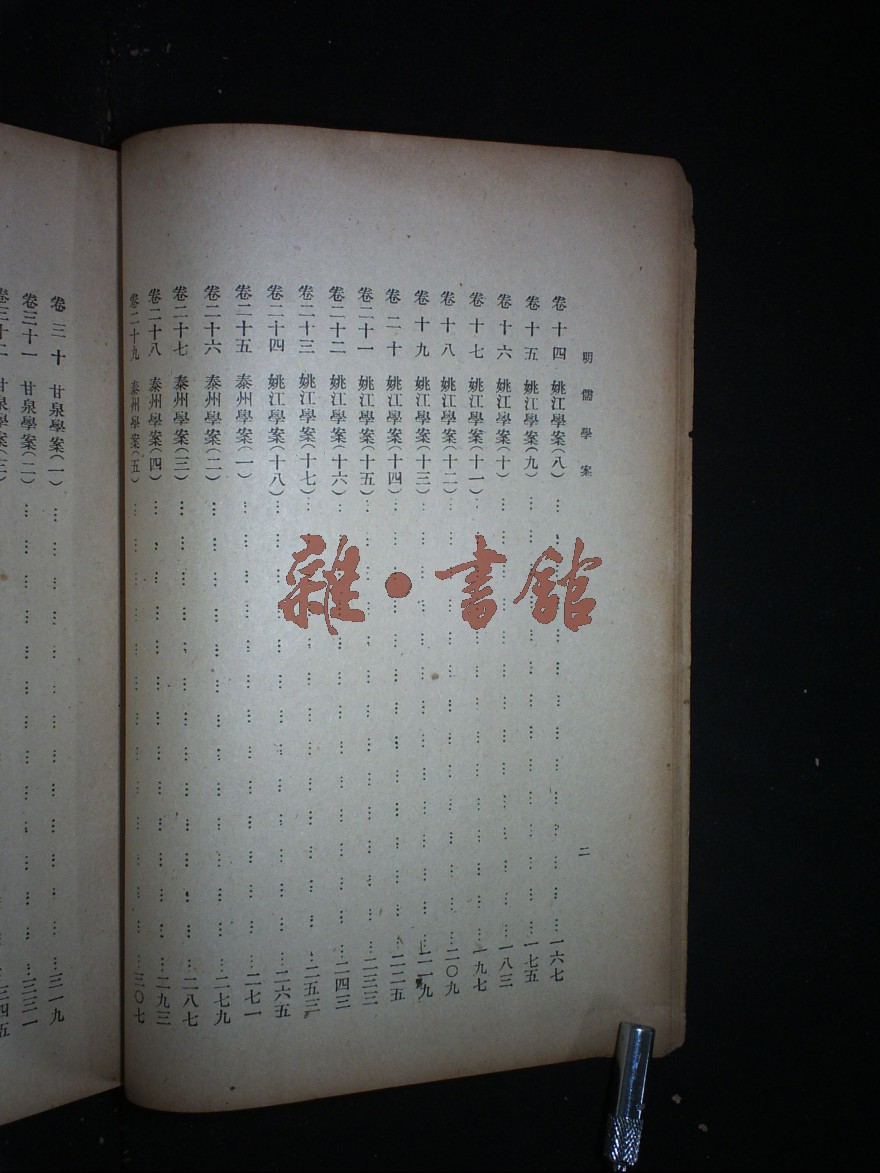 明儒學案
二
卷十四 姚江學案(八)……一六七
卷十五 姚江學案(九)……一七五
卷十六 姚江學案(十)……一八三
卷十七 姚江學案(十一)……一九七
卷十八 姚江學案(十二)……二〇九
卷十九 姚江學案(十三)……二一九
卷二十 姚江學案(十四)……二二五
卷二十一 姚江學案(十五)……二三三
卷二十二 姚江學案(十六)……二四三
卷二十三 姚江學案(十七)……二五三
卷二十四 姚江學案(十八)……二六五
卷二十五 泰州學案(一)……二七一
卷二十六 泰州學案(二)……二七九
卷二十七 泰州學案(三)……二八七
卷二十八 泰州學案(四)……二九三
卷二十九 泰州學案(五)……三〇七
卷三十 甘泉學案(一)……三一九
卷三十一 甘泉學案(二)……三三一
卷三十二 甘泉學案(三)……三四五
雜·書館